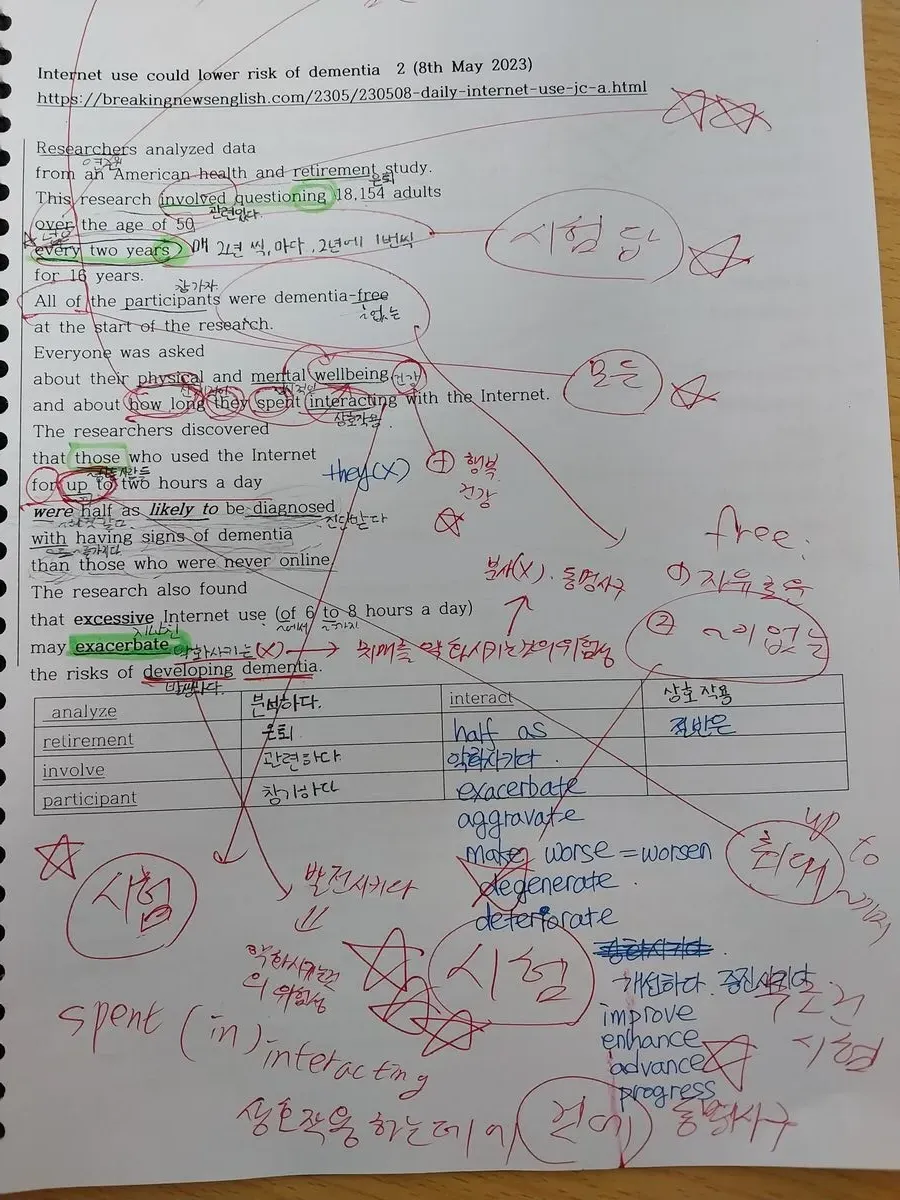 Internet use could lower risk of dementia 2 (8th May 2023)
https://breakingnewsenglish.com/2305/230508-daily-internet-use-jc-a.html
Researchers analyzed data
from an American health and retirement study.
은퇴
This research involved questioning 18,154 adults
관련있다
over the age of 50
every two years 매 2년 씩, 마다, 2년에 1번씩
시험 답
for 16 years.
참가자
All of the participants were dementia-free
~없는
at the start of the research.
Everyone was asked
about their physical and mental wellbeing 건강
모든
and about how long they spent interacting with the Internet.
상호작용
The researchers discovered
that those who used the Internet
they(X)
행복
건강
for up to two hours a day
were half as likely to be diagnosed
진단받다
with having signs of dementia
than those who were never online.
free:
① 자유로운
② ~이 없는
부사(X). 동명사구
The research also found
that excessive Internet use (of 6 to 8 hours a day)
지나친
~에서
~까지
may exacerbate 악화시키는(X) → 치매를 악화시키는것의 위험성
the risks of developing dementia.
발병하다.
analyze 분석하다. interact 상호작용
retirement 은퇴 half as 절반은
involve 관련하다 악화시키다
participant 참가하다 exacerbate
aggravate
make worse = worsen
degenerate
deteriorate
up to
최대
~까지
시험
발전시키다
악화시키는것
의 위험성
시험
개선하다. 증진시키다
improve
enhance
advance
progress
무조건
시험
spent (in) interacting
상호작용하는데에 전에 동명사구